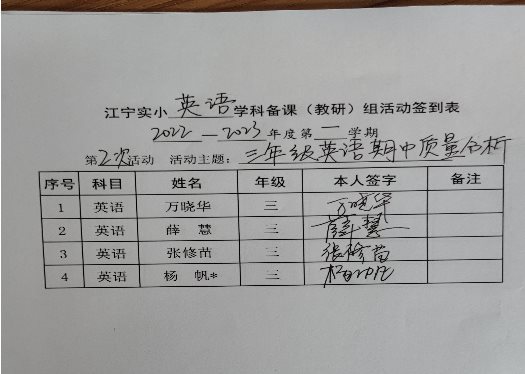 江宁实小 英语 学科备课（教研）组活动签到表
2022—2023 年度第 一 学期
第 2次 活动 活动主题：三年级英语期中质量分析
序号 科目 姓名 年级 本人签字 备注
1 英语 万晓华 三 万晓华
2 英语 薛 慧 三 薛慧
3 英语 张修苗 三 张修苗
4 英语 杨 帆* 三 杨帆